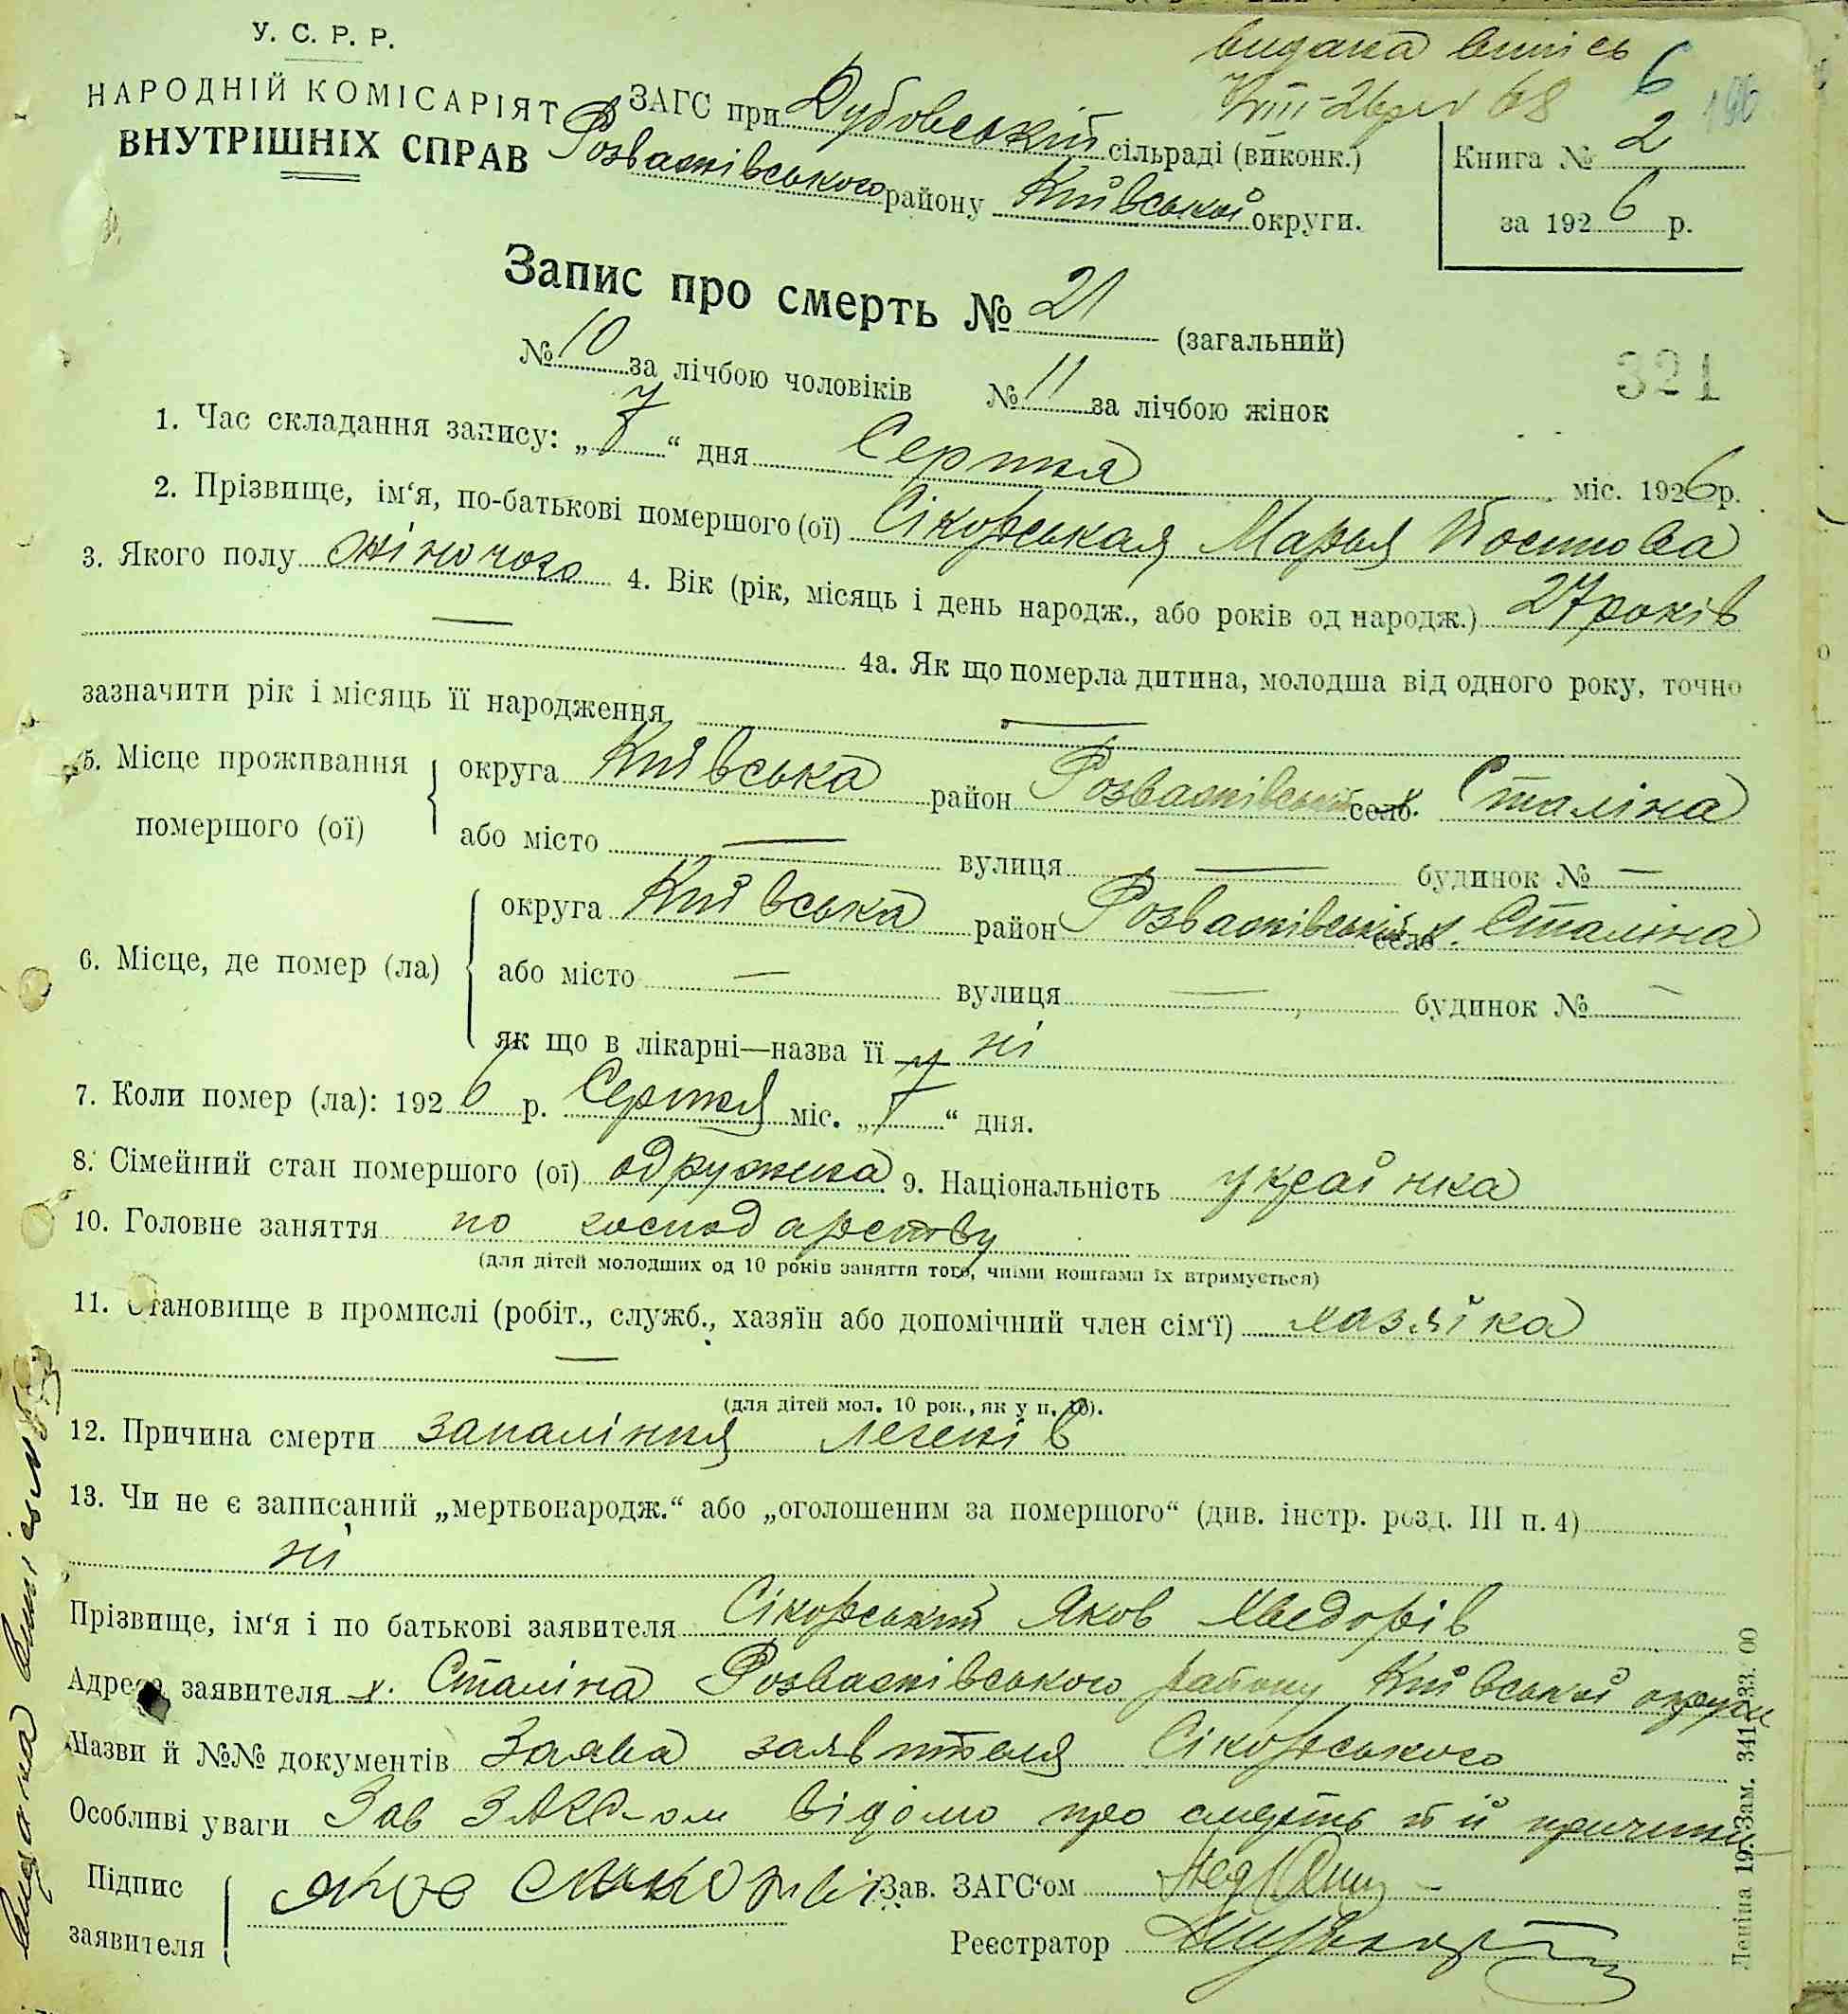 У. С. Р. Р.
НАРОДНІЙ КОМІСАРІЯТ
ВНУТРІШНІХ СПРАВ
видана випись
68
6
ЗАГС при Дубовській сільраді (виконк.)
Розважівського району Київської округи.
Книга № 2
за 1926 р.
Запис про смерть № 21 (загальний)
№ 10 за лічбою чоловіків № 11 за лічбою жінок
321
1. Час складання запису: „7“ дня Серпня міс. 1926 р.
2. Прізвище, ім‘я, по-батькові помершого (ої) Сікорськая Марья
3. Якого полу жіночого 4. Вік (рік, місяць і день народж., або років од народж.) 27 років
— 4а. Як що померла дитина, молодша від одного року, точно
зазначити рік і місяць її народження —
5. Місце проживання помершого (ої)
округа Київська район Розважівський село х. Сталіна
або місто — вулиця — будинок № —
6. Місце, де помер (ла)
округа Київська район Розважівський село х. Сталіна
або місто — вулиця — будинок № —
як що в лікарні—назва її ні
7. Коли помер (ла): 1926 р. Серпня міс. „7“ дня.
8. Сімейний стан помершого (ої) одружена 9. Національність українка
10. Головне заняття по господарству
(для дітей молодших од 10 років заняття того, чиїми коштами їх втримується)
11. Становище в промислі (робіт., служб., хазяїн або допомічний член сім‘ї) хазяїка
—
(для дітей мол. 10 рок., як у п. 10).
12. Причина смерти запаління легенів
13. Чи не є записаний „мертвонародж.“ або „оголошеним за помершого“ (див. інстр. розд. III п. 4)
ні
Прізвище, ім‘я і по батькові заявителя Сікорський Яков Хведорів
Адреса заявителя х. Сталіна Розважівського району Київської округи
Назви й №№ документів Заява заявителя Сікорського
Особливі уваги Зав ЗАГС-ом відомо про смерть й її причини
Підпис заявителя
Зав. ЗАГС‘ом
Реєстратор
видана випись
Леніна 19. Зам. 341-133. 00